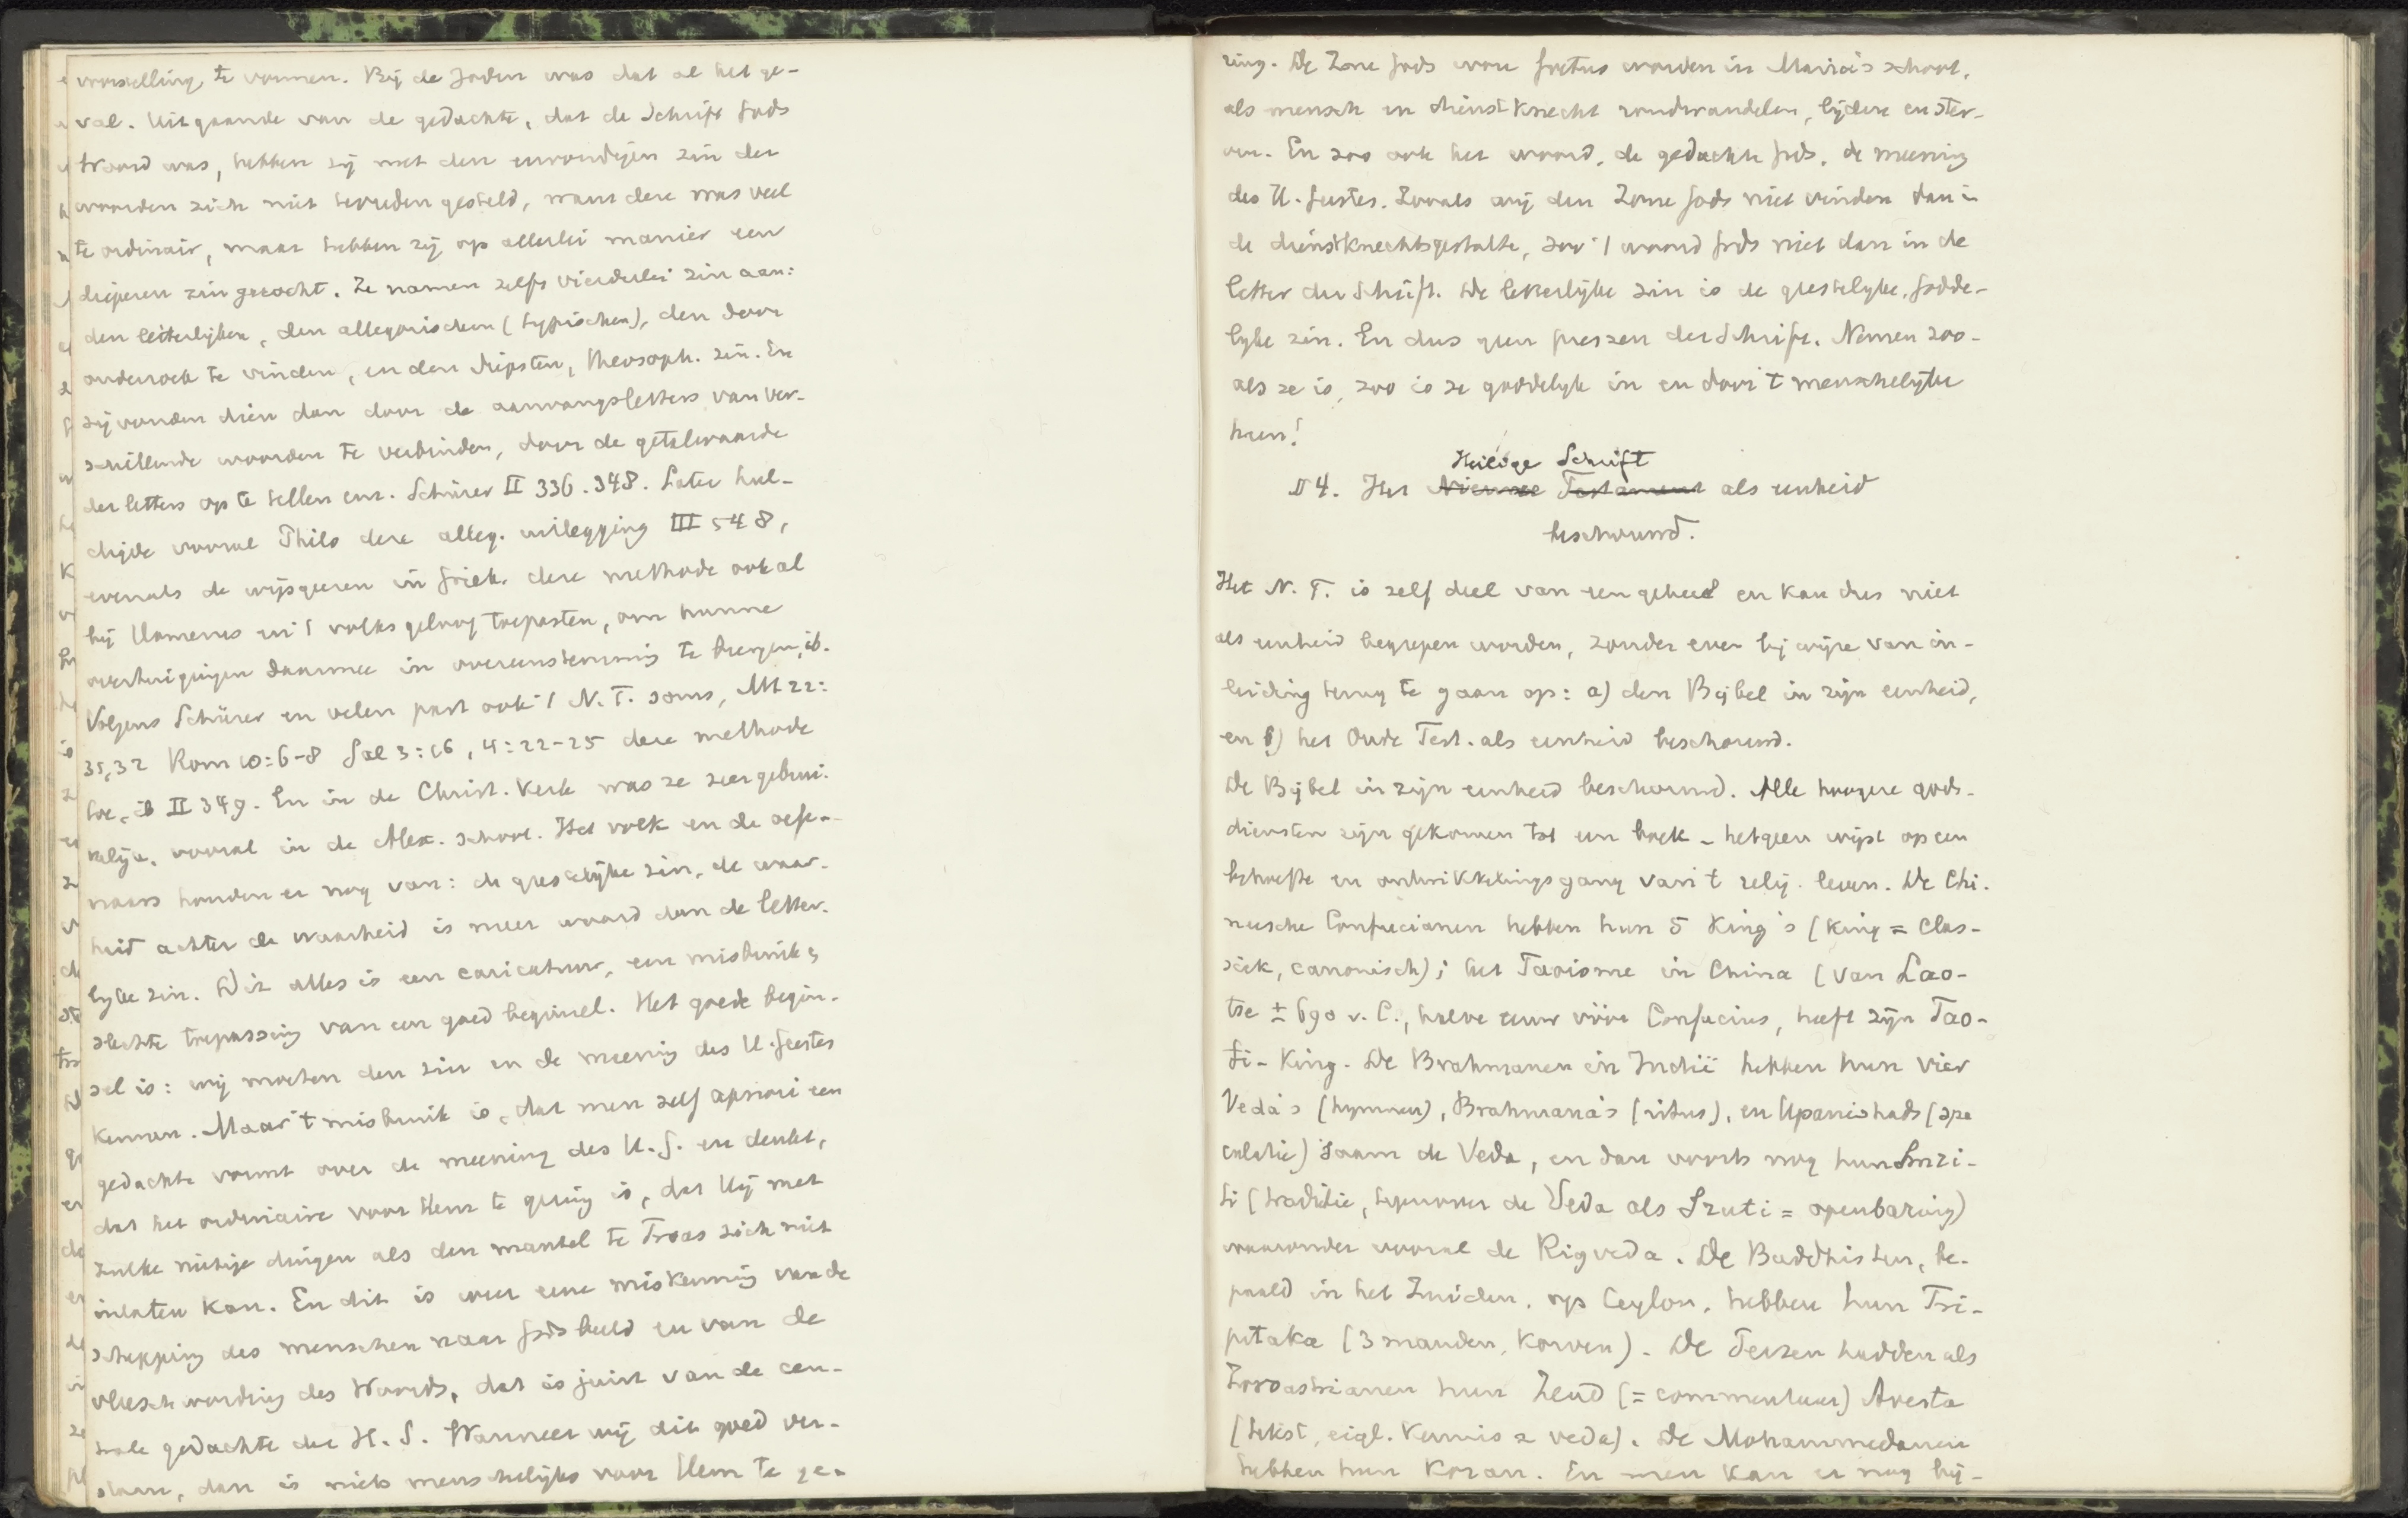 voorstelling te vormen. Bij de Joden was dat al het ge-
val. Uitgaande van de gedachte, dat de Schrift Gods
Woord was, hebben zij met den eenvoudigen zin der
woorden zich niet tevreden gesteld, want deze was veel
te ordinair, maar hebben zij op allerlei manier een
dieperen zin gezocht. Ze namen zelfs vierderlei zin aan:
den letterlijken, den allegorischen (typischen), den door
onderzoek te vinden, en den diepsten, theosoph. zin. En
zij vonden dien dan door de aanvangsletters van ver-
schillende woorden te verbinden, door de getalwaarde
der letters op te tellen enz. Schürer II 336. 348. Later hul-
digde vooral Philo deze alleg. uitlegging III 548,
evenals de wijsgeeren in Griek. deze methode ook al
bij Homerus en 't volksgeloof toepasten, om hunne
overtuigingen daarmee in overeenstemming te brengen, ib.
Volgens Schürer en velen past ook 't N. T. soms, Mt 22:
31,32 Rom 10:6-8 Gal 3:16, 4:22-25 deze methode
toe, ib II 349. En in de Christ. Kerk was ze zeer gebrui-
kelijk, vooral in de Alex. school. Het volk en de oefe-
naars houden er nog van: de geestelijke zin, de waar-
heid achter de waarheid is meer waard dan de letter-
lyke zin. Dit alles is een caricatuur, een misbruik,
slechte toepassing van een goed beginsel. Het goede begin-
sel is: wij moeten den zin en de meening des H. Geestes
kennen. Maar 't misbruik is, dat men zelf apriori een
gedachte vormt over de meening des H. G. en denkt,
dat het ordinaire voor Hem te gering is, dat Hij met
zulke nietige dingen als den mantel te Troas zich niet
inlaten kan. En dit is weer eene miskenning van de
schepping des menschen naar Gods beeld en van de
vleeschwording des Woords, dat is juist van de cen-
trale gedachte der H. S. Wanneer wij dit goed ver-
staan, dan is niets menschelijks voor Hem te ge-
ring. De Zone Gods wou foetus worden in Maria's schoot,
als mensch en dienstknecht rondwandelen, lijden en ster-
ven. En zoo ook het woord, de gedachte Gods, de meening
des H. Geestes. Zooals wij den Zone Gods niet vinden dan in
de dienstknechtsgestalte, zoo 't woord Gods niet dan in de
letter der Schrift. De letterlijke zin is de geestelyke, Godde-
lyke zin. En dus geen persen der Schrift. Nemen zoo-
als ze is, zoo is ze goddelyk in en door 't menschelyke
heen!
Heilige Schrift
§ 4. Het Nieuwe Testament als eenheid
beschouwd.
Het N. T. is zelf deel van een geheel en kan dus niet
als eenheid begrepen worden, zonder even bij wijze van in-
leiding terug te gaan op: a) den Bijbel in zijn eenheid,
en b) het Oude Test. als eenheid beschouwd.
De Bijbel in zijn eenheid beschouwd. Alle hoogere gods-
diensten zijn gekomen tot een boek - hetgeen wijst op een
behoefte en ontwikkelingsgang van 't relig. leven. De Chi-
neesche Confucianen hebben hun 5 King's (King = clas-
siek, canonisch); het Taoisme in China (van Lao-
tse ± 690 v. C., halve eeuw vóór Confucius, heeft zijn Tao-
ti-King. De Brahmanen in Indië hebben hun vier
Veda's (hymnen), Brahmana's (ritus), en Upanishads (spe
culatie) saam de Veda, en dan voorts nog hun Smri-
ti (traditie, tegenover de Veda als Sruti = openbaring)
waaronder vooral de Rigveda. De Buddhisten, be-
paald in het Zuiden, op Ceylon, hebben hun Tri-
pitaka (3 manden, korven). De Perzen hadden als
Zoroastrianen hun Zend (= commentaar) Avesta
(tekst, eigl. kennis = veda). De Mohammedanen
hebben hun Koran. En men kan er nog bij-